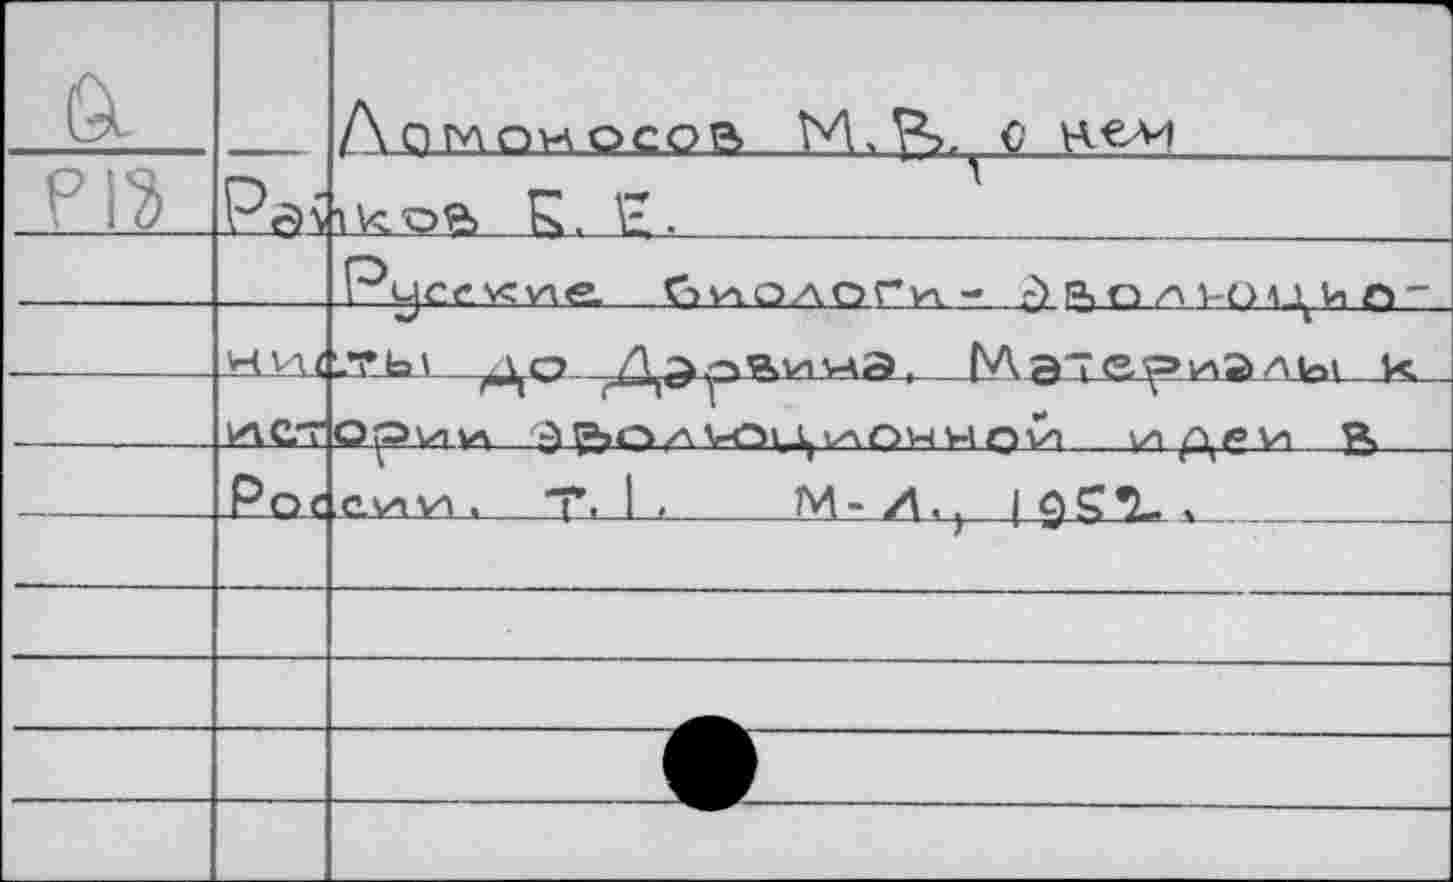 Ломоносов М.В., о нем
Райков Б. Е.
Русские биологи - эволюцио-
нисты до Дарвина. Материалы к
истории эволюционной идеи в
России. Т. 1. М-Л., 1952.